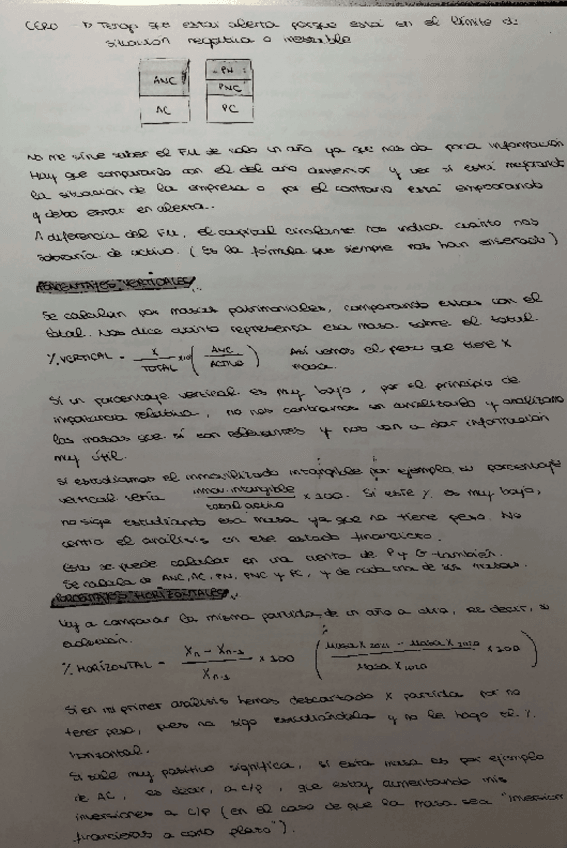 CERO → Tengo que estar alerta porque está en el límite de
situación negativa o inestable
ANC
AC
PN
PNC
PC
No me sirve saber el FM de solo un año ya que nos da poca información
Hay que compararlo con el del año anterior y ver si está mejorando
la situación de la empresa o por el contrario está empeorando
y debo estar en alerta.
A diferencia del FM, el capital circulante nos indica cuánto nos
sobraría de activo. (Es la fórmula que siempre nos han enseñado)
PORCENTAJES VERTICALES
Se calculan por masas patrimoniales, comparando estas con el
total. Nos dice cuánto representa esa masa sobre el total.
% VERTICAL = X / TOTAL x100 (ANC / ACTIVO) Así vemos el peso que tiene X
masa.
Si un porcentaje vertical es muy bajo, por el principio de
importancia relativa, no nos centramos en analizarlo y analizamos
las masas que sí son relevantes y nos van a dar información
muy útil.
Si estudiamos el inmovilizado intangible por ejemplo, su porcentaje
vertical sería inmov. intangible / total activo x 100. Si este % es muy bajo,
no sigo estudiando esa masa ya que no tiene peso. No
centro el análisis en ese estado financiero.
Esto se puede calcular en una cuenta de P y G también.
Se calcula de ANC, AC, PN, PNC y PC, y de cada una de sus masas.
PORCENTAJES HORIZONTALES
Voy a comparar la misma partida de un año a otro, es decir, su
evolución.
% HORIZONTAL = Xn - Xn-1 / Xn-1 x 100 (Masa X 2021 - Masa X 2020 / Masa X 2020 x 100)
Si en mi primer análisis hemos descartado X partida por no
tener peso, pues no sigo estudiándola y no le hago el %
horizontal.
Si sale muy positivo significa, si esta masa es por ejemplo
de AC, es decir, a c/p, que estoy aumentando mis
inversiones a c/p (en el caso de que la masa sea "Inversiones
financieras a corto plazo").